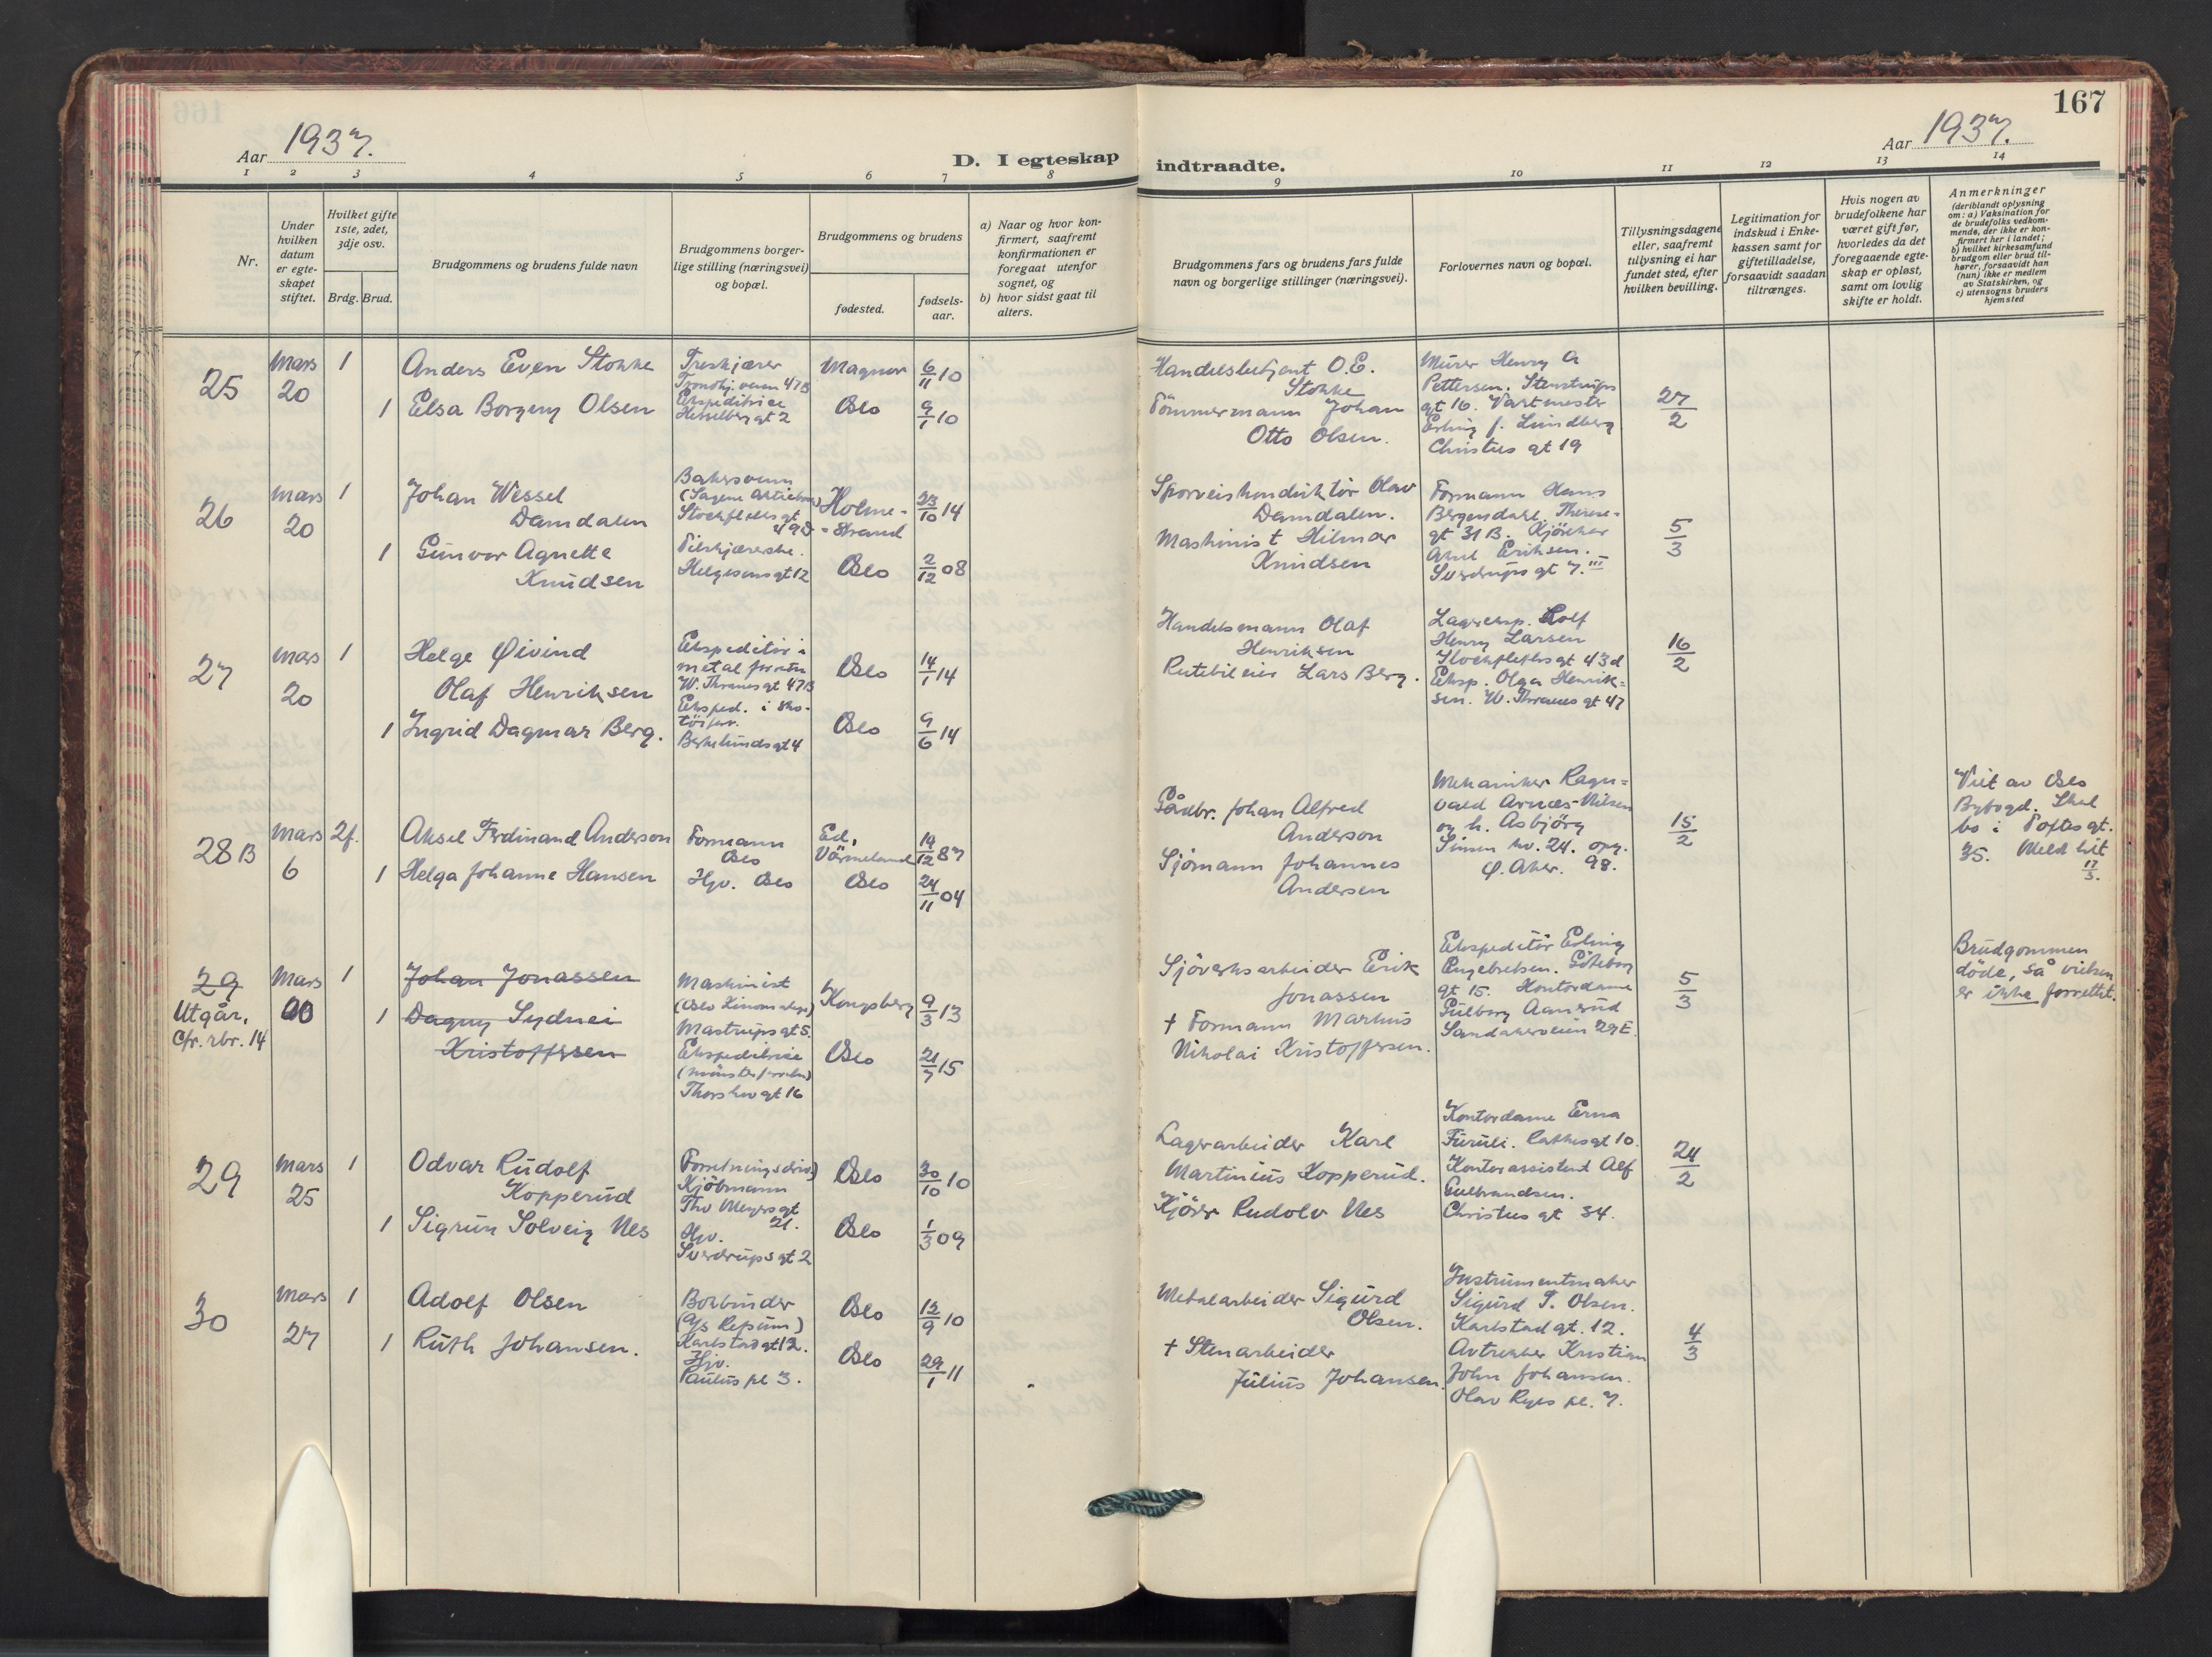 167
Aar 1937.
D. I egteskap
indtraadte.
Aar 1937.
1 2 3 4 5 6 7 8
9 10 11 12 13 14
Nr.
Under
hvilken
datum
er egte-
skapet
stiftet.
Hvilket gifte
1ste, 2det,
3dje osv.
Brdg. Brud.
Brudgommens og brudens fulde navn
Brudgommens borger-
lige stilling (næringsvei)
og bopæl.
Brudgommens og brudens
fødested.
fødsels-
aar.
a) Naar og hvor kon-
firmert, saafremt
konfirmationen er
foregaat utenfor
sognet, og
b) hvor sidst gaat til
alters.
Brudgommens fars og brudens fars fulde
navn og borgerlige stillinger (næringsvei).
Forlovernes navn og bopæl.
Tillysningsdagene
eller, saafremt
tillysning ei har
fundet sted, efter
hvilken bevilling.
Legitimation for
indskud i Enke-
kassen samt for
giftetilladelse,
forsaavidt saadan
tiltrænges.
Hvis nogen av
brudefolkene har
været gift før,
hvorledes da det
foregaaende egte-
skap er opløst,
samt om lovlig
skifte er holdt.
Anmerkninger
(deriblandt oplysning
om: a) Vaksination for
de brudefolks vedkom-
mende, der ikke er kon-
firmert her i landet;
b) hvilket kirkesamfund
brudgom eller brud til-
hører, forsaavidt han
(hun) ikke er medlem
av Statskirken, og
c) utensogns bruders
hjemsted
25
Mars
20
1
Anders Even Stokke
Treskjærer
Trondhj.veien 47B
Magnor
6/11 10
1
Elsa Borgny Olsen
Ekspeditrice
Hesselberg gt 2
Oslo
9/1 10
Handelsbetjent O.E.
Stokke
Tömmermann Johan
Otto Olsen.
Murer Henry A
Pettersen. Stenstrups
gt 16. Vaktmester
Erling f. Lundberg
Christies gt 19
27/2
26
Mars
20
1
Johan Wessel
Damdalen
Bakersvenn
Stockfleths gt
49D
Holme-
-strand
23/10 14
1
Gunvor Agnette
Knudsen
Pelskjærerske.
Helgesens gt 12
Oslo
2/12 08
Sporveiskonduktör Olav
Damdalen.
Maskinist Hilmar
Knudsen
Formann Hans
Bergendahl, Therese-
gt 31 B. Kjöreker
Aksel Eriksen.
Sverdrups gt 7.III
5/3
27
Mars
20
1
Helge Øivind
Olaf Henriksen
Ekspeditör i
metal forretn
W. Thranes gt 47B
Oslo
14/1 14
1
Ingrid Dagmar Berg.
Eksped. i sko-
töiforr.
Birkelunds gt 4
Oslo
9/6 14
Handelsmann Olaf
Henriksen
Rutebileier Lars Berg.
Lagereksp. Rolf
Henry Larsen
Stockfleths gt 43d
Eksp. Olga Henrik-
sen. W. Thranes gt 47
16/2
28B
Mars
6
2f.
Aksel Ferdinand Anderson
Formann
Oslo
Ed,
Värmeland
19/12 87
1
Helga Johanne Hansen
Hjv. Oslo
Oslo
24/11 04
Gårdbr. Johan Alfred
Anderson
Sjömann Johannes
Andersen
Mekaniker Ragn-
vald Arnæs-Nilsen
og h. Asbjörg
Sinsen hv. 24. opg.
Ø. Aker. 98.
15/2
Viet av Oslo
Byfogd. Skal
bo i Toftes gt.
35. Meld hit
17/3.
29
Utgår,
Cfr. rbr. 14
Mars
1
Johan Jonassen
Maskinist
Mastrups gt 5.
Kongsberg
9/3 13
1
Dagny Sydnei
Kristoffersen
Ekspeditrice
Thorshov gt 16
Oslo
21/7 15
Sjöverksarbeider Erik
Jonassen
† Formann Markus
Nikolai Kristoffersen.
Ekspeditör Erling
Engebretsen. Göteborg
gt 15. Kontordame
Gulborg Aamrud
Sandakerveien 29E.
5/3
Brudgommen
döde, så vielsen
er ikke forrettet.
29
Mars
25
1
Odvar Rudolf
Kopperud
Forretningsdriv.)
Kjöbmann
Thv Meyers gt
21.
Oslo
30/10 10
1
Sigrun Solveig Nes
Hjv.
Sverdrups gt 2
Oslo
1/3 09
Lagerarbeider Karl
Martinius Kopperud.
Kjörer Rudolv Nes
Kontordame Erna
Furuli. Rathkes gt 10.
Kontorassistent Alf
Gulbrandsen.
Christies gt 34.
24/2
30
Mars
27
1
Adolf Olsen
Bokbinder
Karlstad gt 12.
Oslo
12/9 10
1
Ruth Johansen.
Hjv.
Paulus pl 3.
Oslo
29/1 11
Metalarbeider Sigurd
Olsen.
† Stenarbeider
Julius Johansen.
Instrumentmaker
Sigurd T. Olsen.
Karlstad gt. 12.
Avtrekker Kristian
John Johansen.
Olav Ryes pl. 7.
4/3